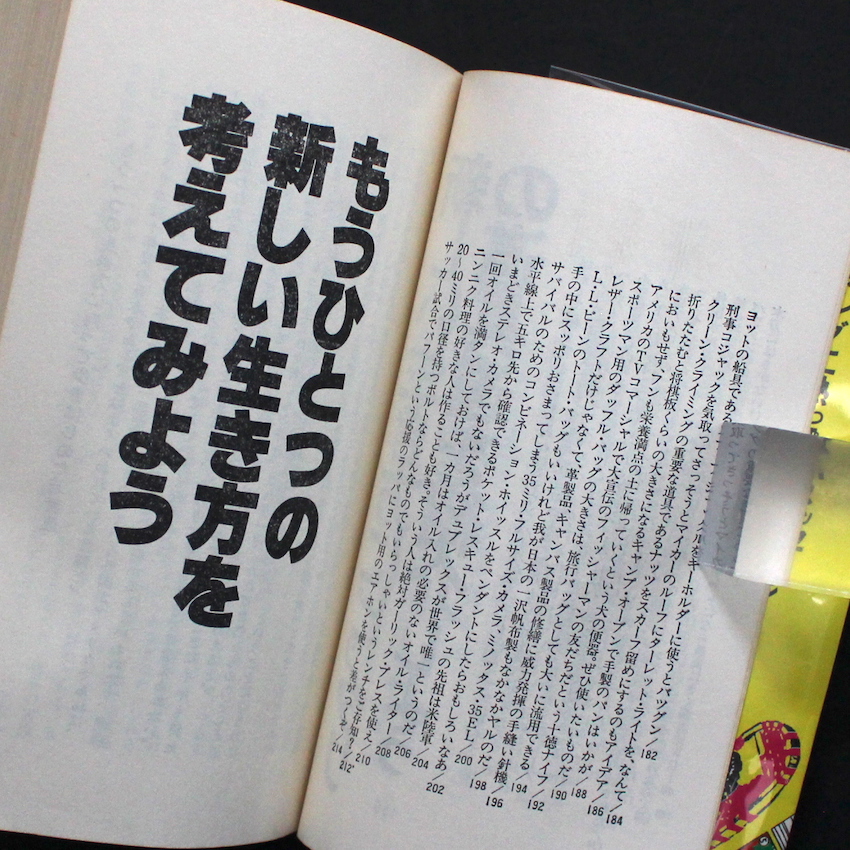 ヨットの船具である
クルをキーホルダーに使うとバツグン/182
刑事コジャックを気取ってさっそうとマイカーのルーフにターレット・ライトを、なんて/184
クリーン・クライミングの重要な道具であるナッツをスカーフ留めにするのもアイデア/186
折りたたむと将棋板くらいの大きさになるキャンプ・オーブンで手製のパンはいかが/188
においもせずフンも栄養満点の土に帰っていくという犬の便器。ぜひ使いたいものだ/190
アメリカのTVコマーシャルで大宣伝のフィッシャーマンの友だちだという十徳ナイフ/192
スポーツマン用のダッフル・バッグの大きさは、旅行バッグとしても大いに流用できる/194
レザー・クラフトだけじゃなくて、革製品、キャンバス製品の修繕に威力発揮の手縫い針機/196
L・L・ビーンのトート・バッグもいいけれど我が日本の一沢帆布製もなかなかヤルのだ/198
手の中にスッポリおさまってしまう35ミリ・フルサイズ・カメラ、ミノックス・35EL/200
サバイバルのためのコンビネーション・ホイッスルをペンダントにしたらおもしろいなあ/202
水平線上で五キロ先から確認できるポケット・レスキュー・フラッシュの先祖は米陸軍/204
いまどきステレオ・カメラでもないだろうがデュプレックスが世界で唯一というのだ/206
一回オイルを満タンにしておけば、一カ月はオイル入れの必要のないオイル・ライター/208
ニンニク料理の好きな人は作ることも好き。そういう人は絶対ガーリック・プレスを使え/210
20〜40ミリの口径を持つボルトならどんなものでもいらっしゃいというレンチをご存知?/212
サッカー試合でパフーンという応援のラッパにヨット用のエアホンを使うと差がつくぞ/214
もうひとつの
新しい生き方を
考えてみよう